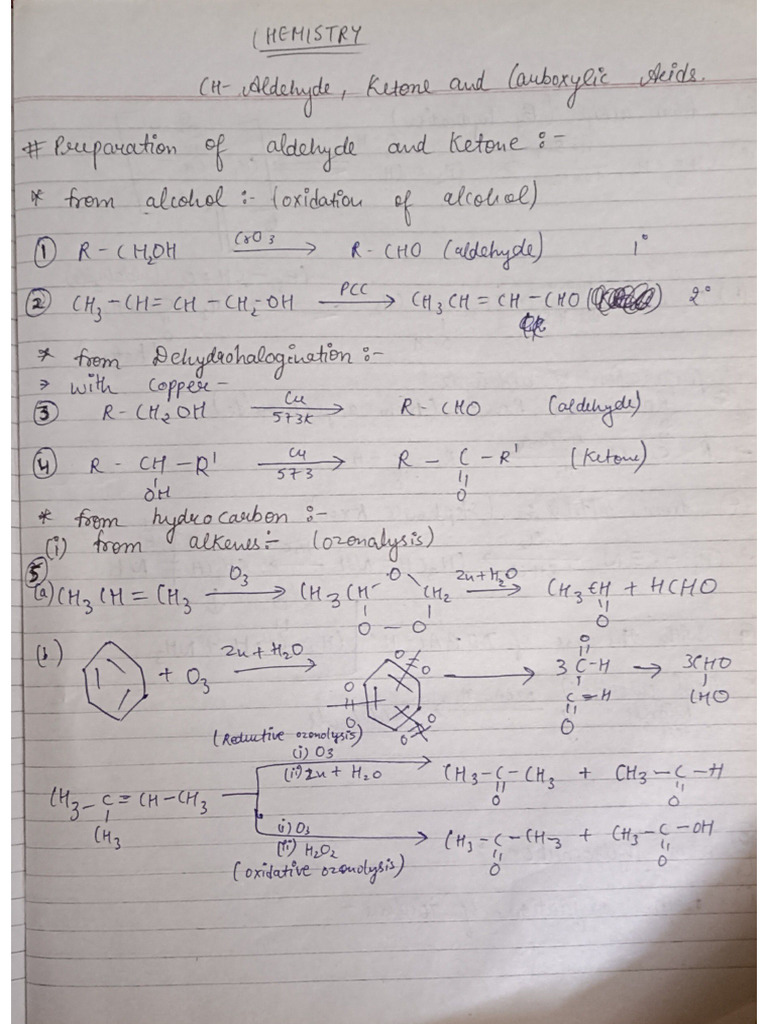 CHEMISTRY
CH- Aldehyde, Ketone and Carboxylic Acids.
# Preparation of aldehyde and Ketone :-
* from alcohol :- (oxidation of alcohol)
① R - CH2OH CrO3 → R - CHO (aldehyde) 1°
② CH3 - CH = CH - CH2 - OH PCC → CH3 CH = CH - CHO 2°
* from Dehydrohalogination :-
→ with copper -
③ R - CH2OH Cu 573K → R - CHO (aldehyde)
④ R - CH - R' Cu 573 → R - C - R' (Ketone)
OH O
* from hydrocarbon :-
(i) from alkenes :- (ozonalysis)
⑤
(a) CH3 CH = CH3 O3 → CH3 CH - O CH2 Zn + H2O → CH3 CH + HCHO
O - O O
(b) + O3 Zn + H2O → O O O O O O → 3 C - H → 3CHO
O C = H CHO
O
(Reductive ozonolysis)
(i) O3
(ii) Zn + H2O
CH3 - C = CH - CH3 → CH3 - C - CH3 + CH3 - C - H
CH3 O O
i) O3
(ii) H2O2 → CH3 - C - CH-3 + CH3 - C - OH
O O
(oxidative ozonolysis)